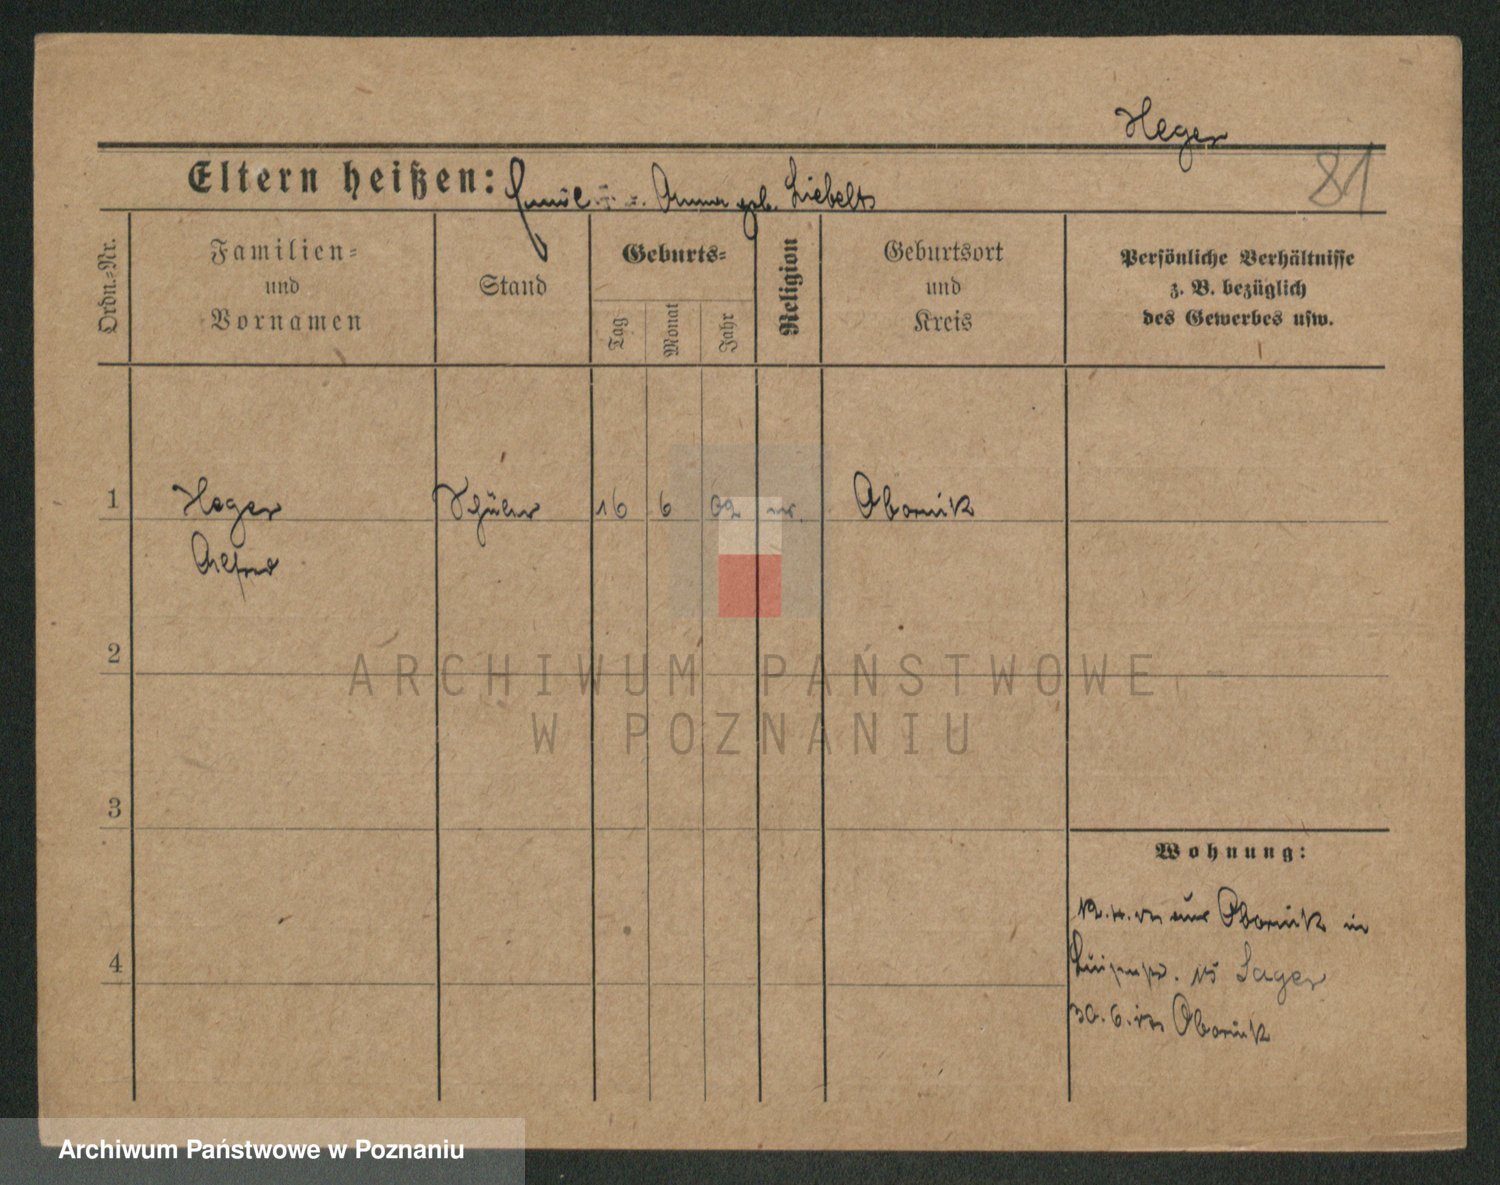 Heger
81
Eltern heißen: Emil u. Anna geb. Liebelt
Ordn.-Nr.
Familien=
und
Vornamen
Stand
Geburts=
Tag
Monat
Jahr
Religion
Geburtsort
und
Kreis
Persönliche Verhältnisse
z. B. bezüglich
des Gewerbes usw.
1 Heger Schüler 16 6 02 Obornik
Alfred
2
ARCHIWUM PAŃSTWOWE
W POZNANIU
3
Wohnung:
aus Obornik in
4
15 Sager
30. 6. Obornik
Archiwum Państwowe w Poznaniu